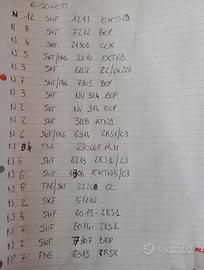 CUSCINETTI
N 12 SKF 1213 EKTN9
N 8 SKF 7212 BEP
N 4 SKF 21309 CCK
N 5 SKF/FAG 2210 EKTN9
N 3 SKF 6202 2Z/VA208
N 7 SKF/FAG 7305 BEP
N 3 SKF NU 314 ECP
N 2 SKF NU 314 ECP
N 2 SKF 3208 ATN9
N 6 SKF/FAG 6314 2RS1/C3
N 4 FAG
N 6 SKF 6213 2RS1/C3
N 6 SKF EKTN9/C3
N 8 FAG/SKF 22208 CC
N 2 SKF 51210
N 4 SKF 6013 - 2RS1
N 7 SKF 6014 - 2RS1
N 2 SKF 7307 BEP
N° 7 FAG 6313 2RSR
Subito